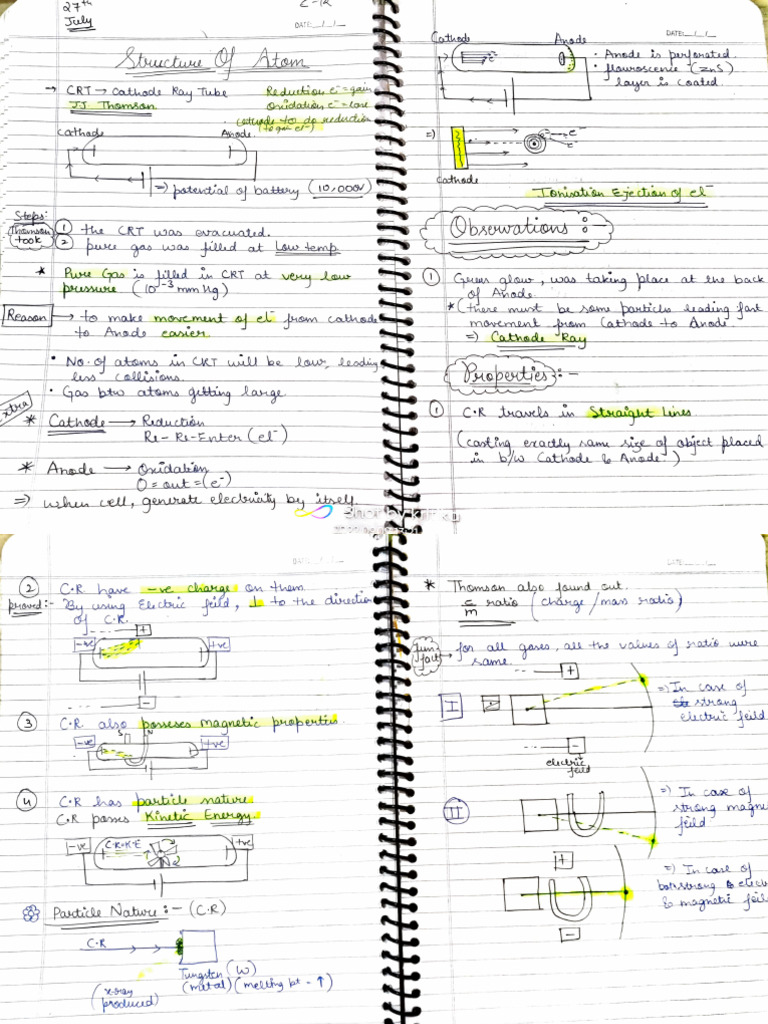 27th
July
C-12
DATE:__/__/__
Structure Of Atom
→ CRT → Cathode Ray Tube
J.J. Thomson
Reduction e⁻ = gain
Oxidation e⁻ = lose
cathode to do reduction
(to gain el⁻)
Cathode
Anode
⇒ potential of battery (10,000V)
Steps:
Thomson took
① the CRT was evacuated.
② pure gas was filled at Low temp
* Pure Gas is filled in CRT at very low
pressure (10⁻³ mm Hg)
Reason → to make movement of el⁻ from cathode
to Anode easier
• No. of atoms in CRT will be low, leading
less collisions.
• Gap btw atoms getting large.
xtra
* Cathode → Reduction
Re - Re-Enter (el⁻)
* Anode → Oxidation
O = out = (e⁻)
⇒ when cell, generate electricity by itself
DATE:__/__/__
Cathode
Anode
e⁻
• Anode is perforated.
• flouroscence (ZnS)
layer is coated.
⇒)
e⁻
e⁻
Cathode
Ionisation Ejection of el⁻
Observations :-
① Green glow, was taking place at the back
of Anode.
* (there must be some particles leading fast
movement from Cathode to Anode
⇒ Cathode Ray
Properties :-
① C.R travels in Straight Lines
(casting exactly same size of object placed
in b/w Cathode & Anode⁻)
DATE:__/__/__
② C.R have -ve charge on them.
proved:- By using Electric feild, ⊥ to the direction
of C.R.
+
-ve
+ve
-
③ C.R also posseses magnetic properties.
S
N
-ve
+ve
④ C.R has particle nature
C.R posses Kinetic Energy.
-ve
C.R.K.E
+ve
Particle Nature :- (C.R)
C.R
Tungsten (W)
(metal) (melling pt - ↑)
(x-ray
produced)
DATE:__/__/__
* Thomson also found out.
e/m ratio (charge/mass ratio)
fun fact → for all gases, all the values of ratio were
same.
+
I
⇒) In case of
strong
electric feild
-
electric
feild
II
⇒) In case of
strong magne
feild
+
⇒) In case of
strong elect
& magnetic feil
-